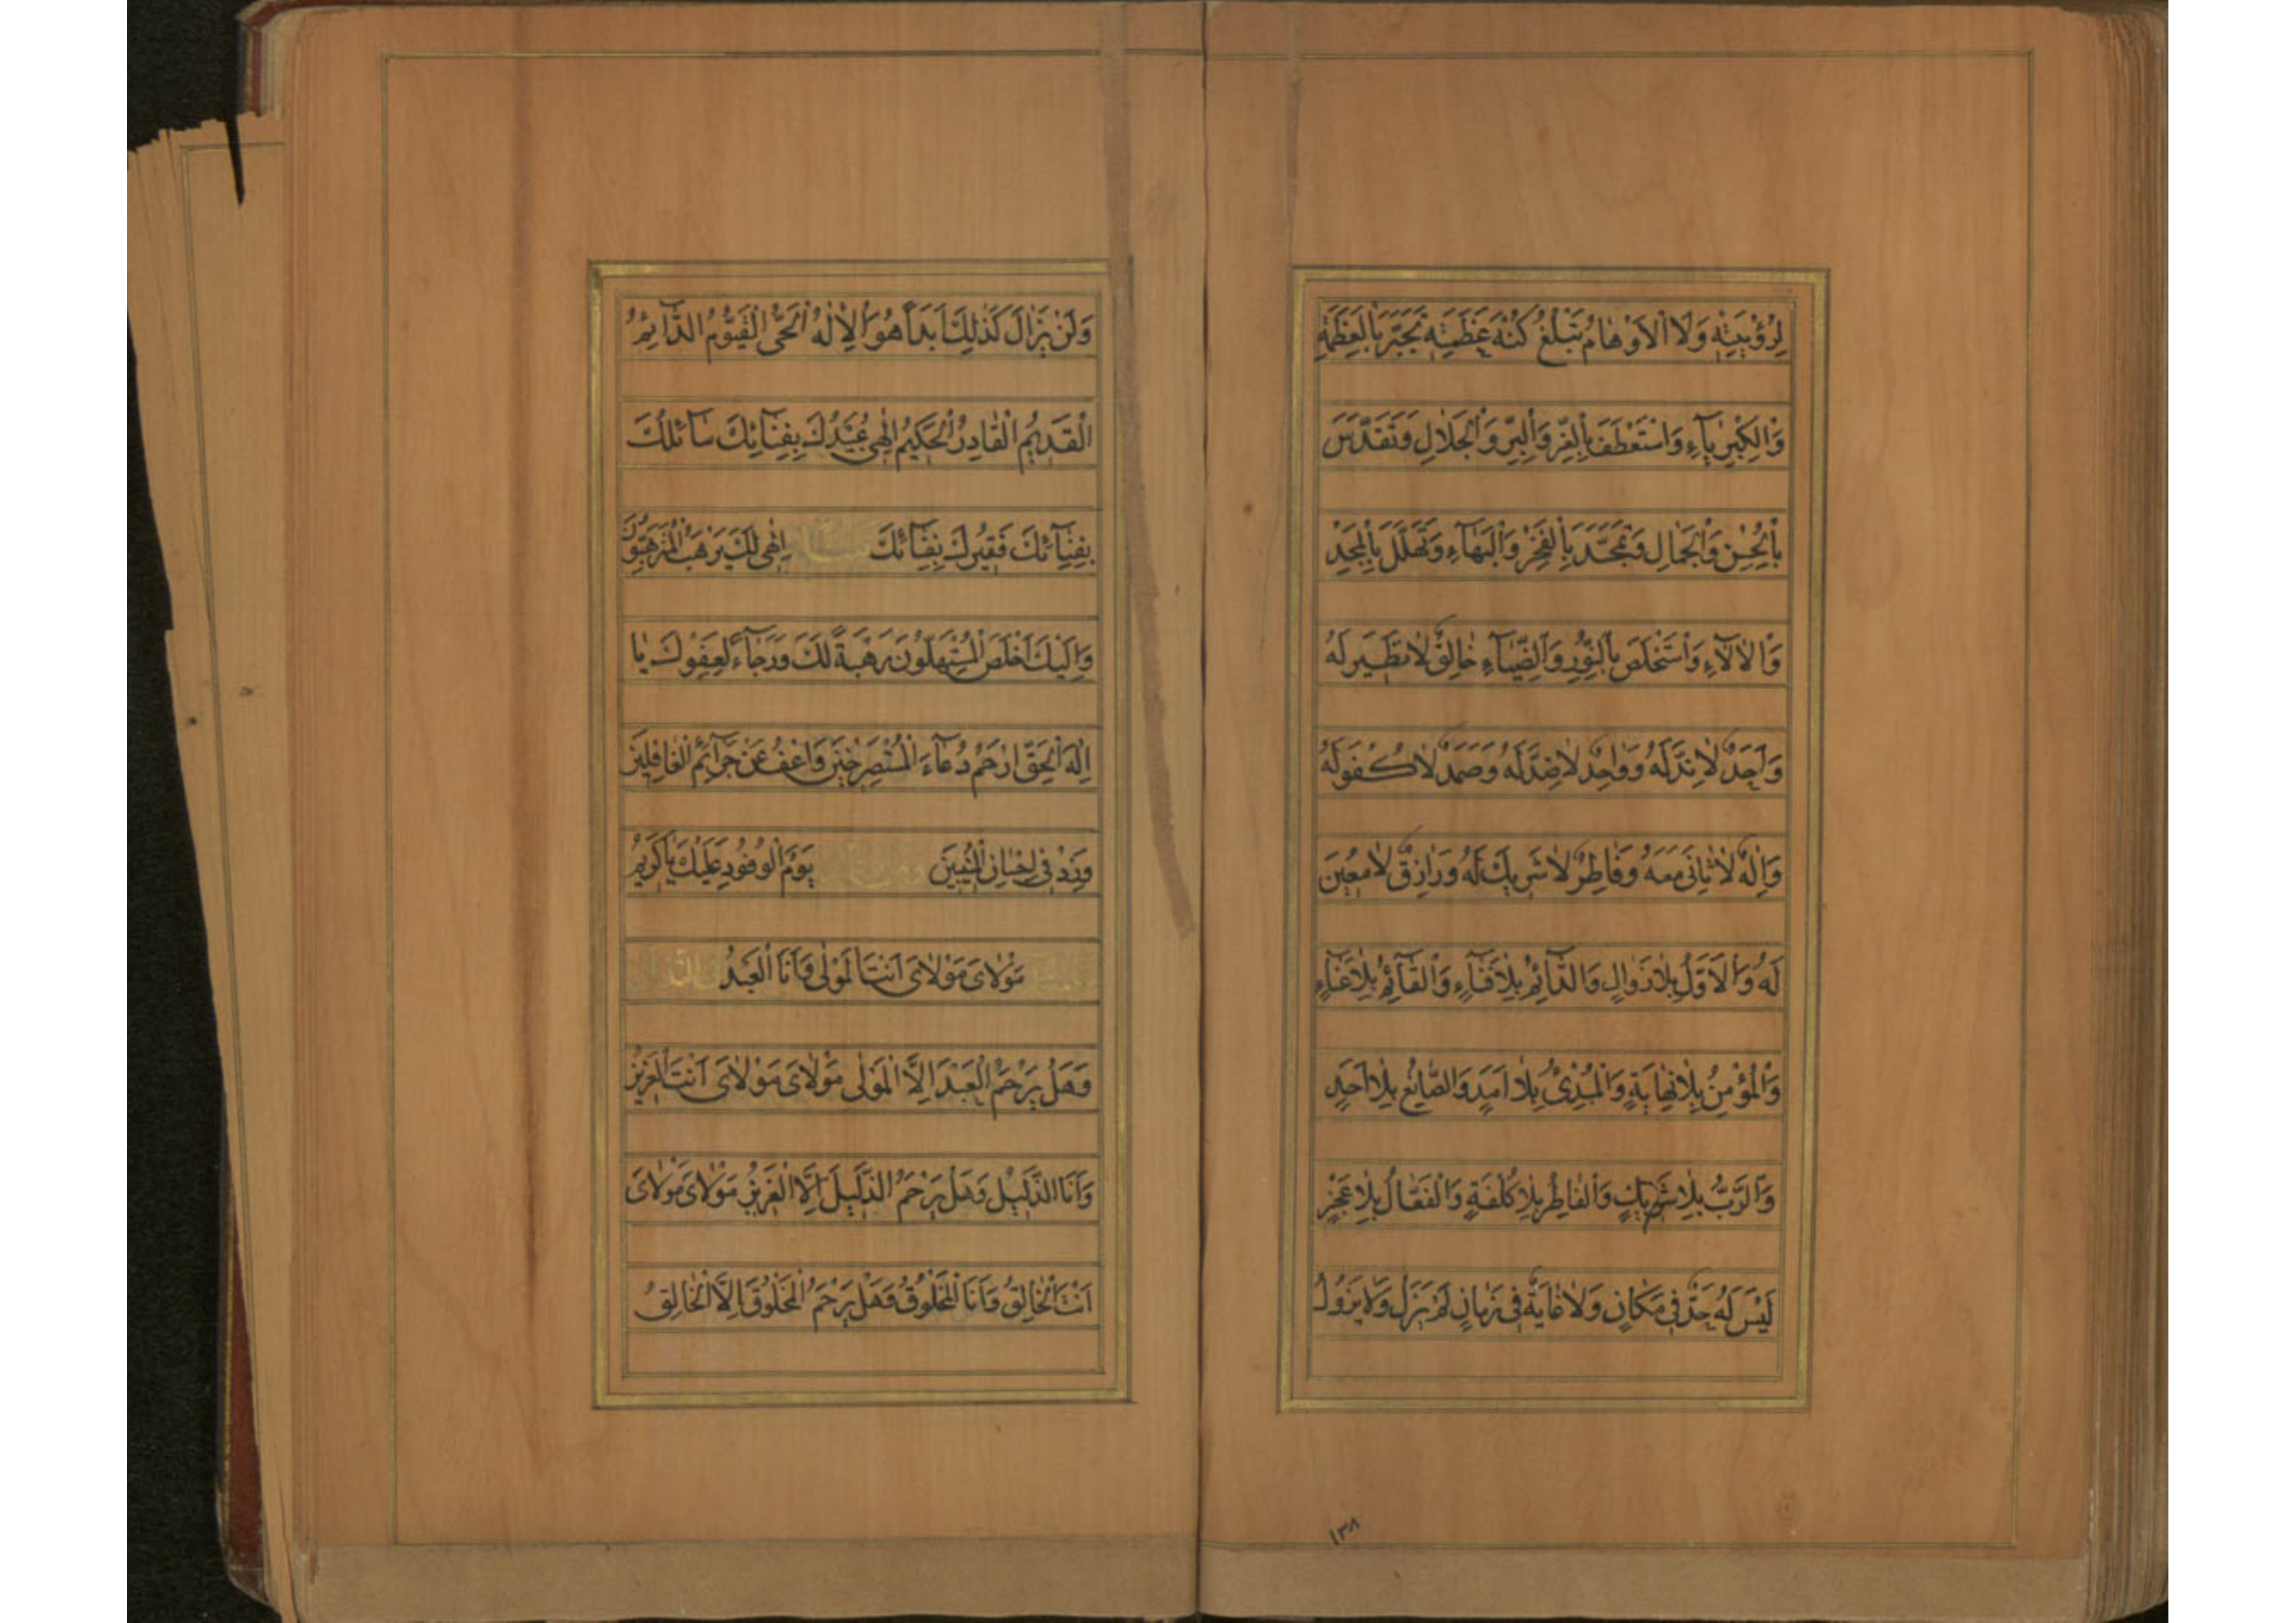 لِرُؤْيَتِهِ وَلَا الْاَوْهَامُ تَبْلُغُ كُنْهَ عَظَمَتِهِ تَجَبَّرَ بِالْعَظَمَةِ
وَالْكِبْرِيَآءِ وَاسْتَعْطَفَ بِالْعِزِّ وَالْبِرِّ وَالْجَلَالِ وَتَقَدَّسَ
بِالْحُسْنِ وَالْجَمَالِ وَتَمَجَّدَ بِالْفَخْرِ وَالْبَهَآءِ وَتَهَلَّلَ بِالْمَجْدِ
وَالْاٰلَآءِ وَاسْتَخْلَصَ بِالنُّورِ وَالضِّيَآءِ خَالِقٌ لَا نَظِيرَ لَهُ
وَاَحَدٌ لَا نِدَّ لَهُ وَوَاحِدٌ لَا ضِدَّ لَهُ وَصَمَدٌ لَا كُفْوَ لَهُ
وَاِلٰهٌ لَا ثَانِيَ مَعَهُ وَفَاطِرٌ لَا شَرِيكَ لَهُ وَرَازِقٌ لَا مُعِينَ
لَهُ وَالْاَوَّلُ بِلَا زَوَالٍ وَالدَّآئِمُ بِلَا فَنَآءٍ وَالْقَآئِمُ بِلَا عَنَآءٍ
وَالْمُؤْمِنُ بِلَا نِهَايَةٍ وَالْمُبْدِئُ بِلَا اَمَدٍ وَالصَّانِعُ بِلَا اَحَدٍ
وَالرَّبُّ بِلَا شَرِيكٍ وَالْفَاطِرُ بِلَا كُلْفَةٍ وَالْفَعَّالُ بِلَا عَجْزٍ
لَيْسَ لَهُ حَدٌّ فِي مَكَانٍ وَلَا غَايَةٌ فِي زَمَانٍ لَمْ يَزَلْ وَلَا يَزُولُ
١٣٨
وَلَنْ يَزَالَ كَذٰلِكَ اَبَدًا هُوَ الْاِلٰهُ الْحَيُّ الْقَيُّومُ الدَّآئِمُ
الْقَدِيمُ الْقَادِرُ الْحَكِيمُ اِلٰهِي عُبَيْدُكَ بِفِنَآئِكَ سَآئِلُكَ
بِفِنَآئِكَ فَقِيرُكَ بِفِنَآئِكَ اِلٰهِي لَكَ يَرْهَبُ الْمُتَرَهِّبُونَ
وَاِلَيْكَ اَخْلَصَ الْمُسْتَهِلُّونَ رَهْبَةً لَكَ وَرَجَآءً لِعَفْوِكَ يَا
اِلٰهَ الْحَقِّ ارْحَمْ دُعَآءَ الْمُسْتَصْرِخِينَ وَاعْفُ عَنْ جَرَآئِمِ الْغَافِلِينَ
وَزِدْ فِي اِحْسَانِ الْمُنِيبِينَ يَوْمَ الْوُفُودِ عَلَيْكَ يَا كَرِيمُ
مَوْلَايَ مَوْلَايَ اَنْتَ الْمَوْلٰى وَاَنَا الْعَبْدُ
وَهَلْ يَرْحَمُ الْعَبْدَ اِلَّا الْمَوْلٰى مَوْلَايَ مَوْلَايَ اَنْتَ الْعَزِيزُ
وَاَنَا الذَّلِيلُ وَهَلْ يَرْحَمُ الذَّلِيلَ اِلَّا الْعَزِيزُ مَوْلَايَ مَوْلَايَ
اَنْتَ الْخَالِقُ وَاَنَا الْمَخْلُوقُ وَهَلْ يَرْحَمُ الْمَخْلُوقَ اِلَّا الْخَالِقُ